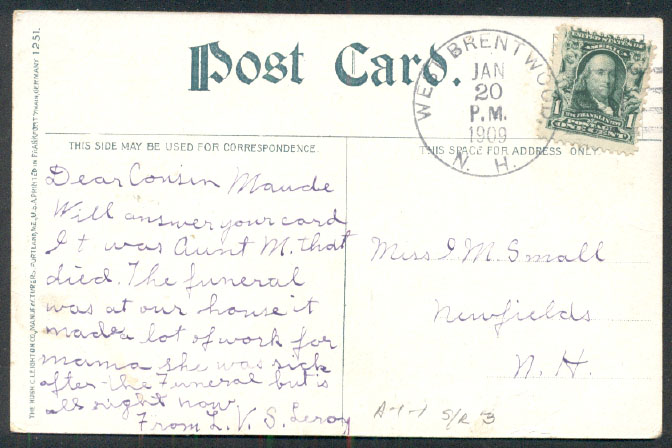 Post Card.
WEST BRENTWOOD
JAN
20
P.M.
1909
N. H.
UNITED STATES OF
AMERICA
1 1
POSTAGE
ONE CENT
THIS SIDE MAY BE USED FOR CORRESPONDENCE.
THIS SPACE FOR ADDRESS ONLY.
Dear Cousin Maude
Will answer your card
It was Aunt M. that
died. The funeral
was at our house it
made a lot of work for
mama she was sick
after the Funeral but is
all right now
From L. V. S. Leroy
Miss I M. Small
Newfields
N. H.
A-1-1 S/R 3
THE HUGH C. LEIGHTON CO., MANUFACTURERS, PORTLAND, ME., U.S.A. PRINTED IN FRANKFORT MAIN, GERMANY 1251.